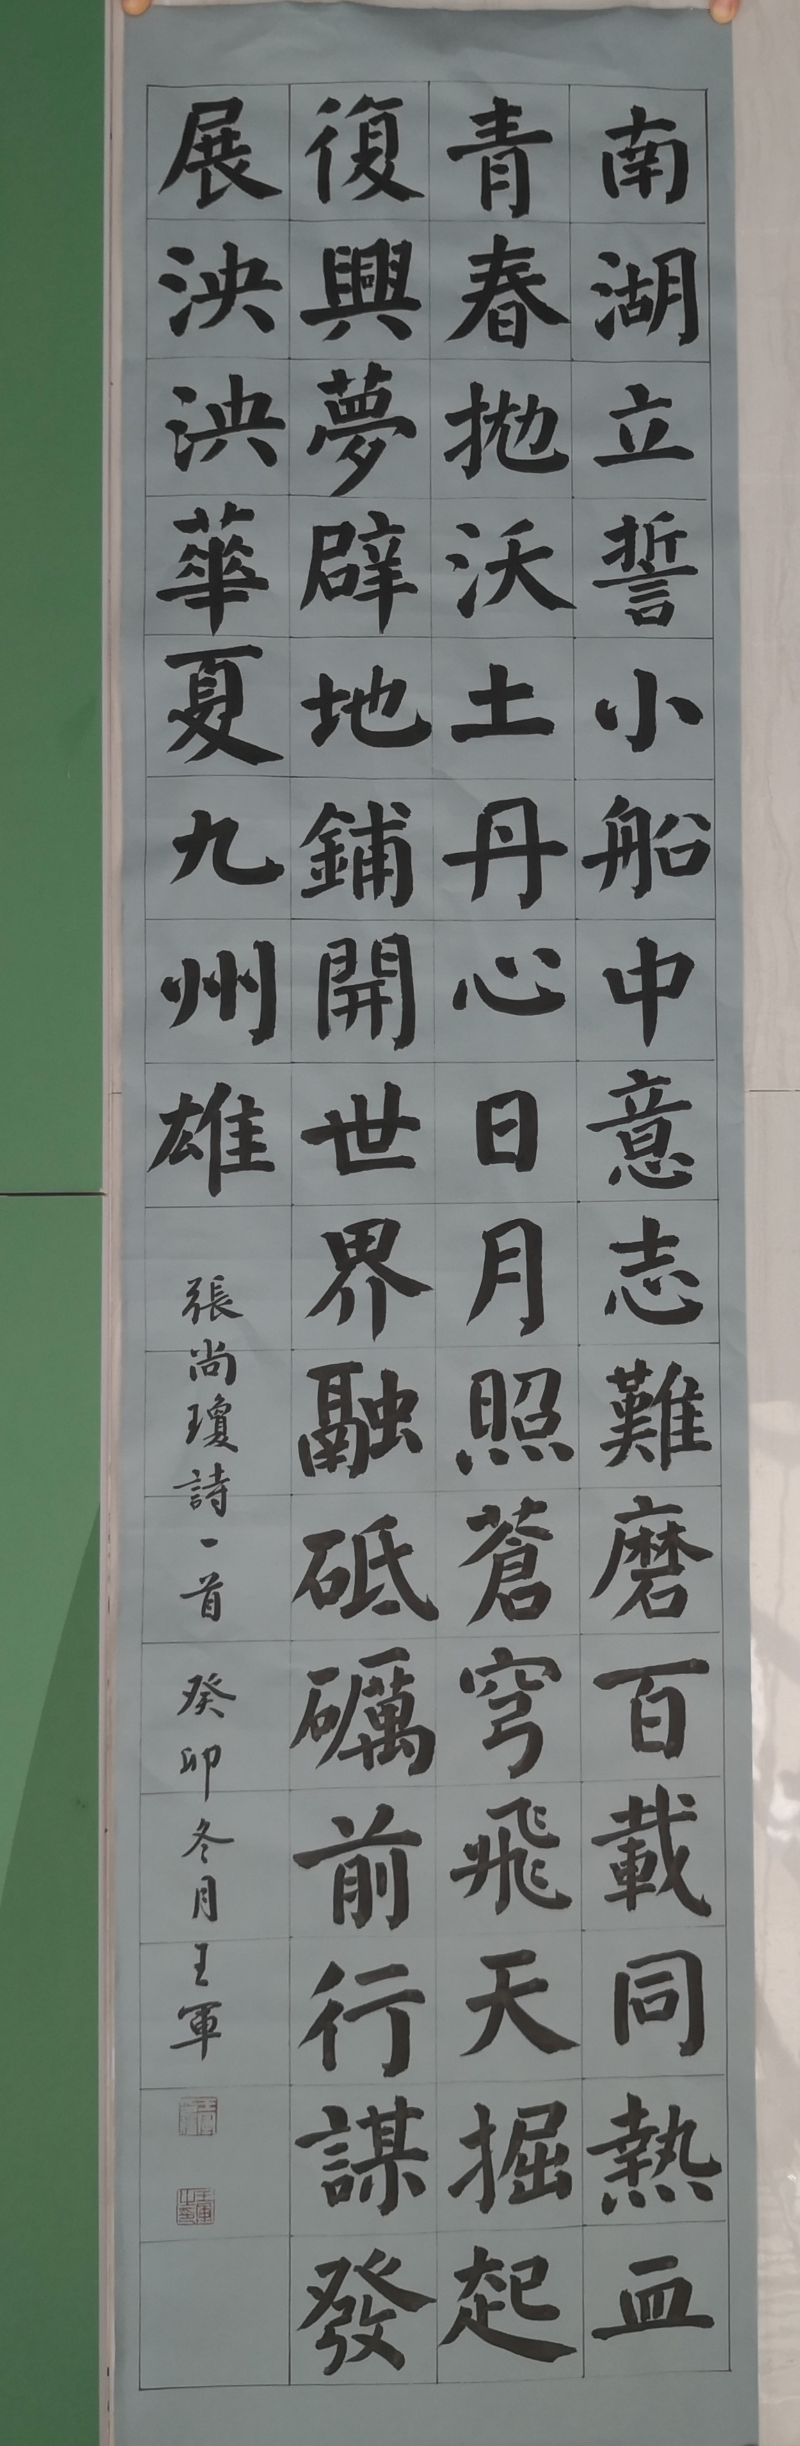 南湖立誓小船中意志難磨百載同熱血
青春拋沃土丹心日月照蒼穹飛天掘起
復興夢辟地鋪開世界融砥礪前行謀發
展泱泱華夏九州雄
張尚瓊詩一首癸卯冬月王軍